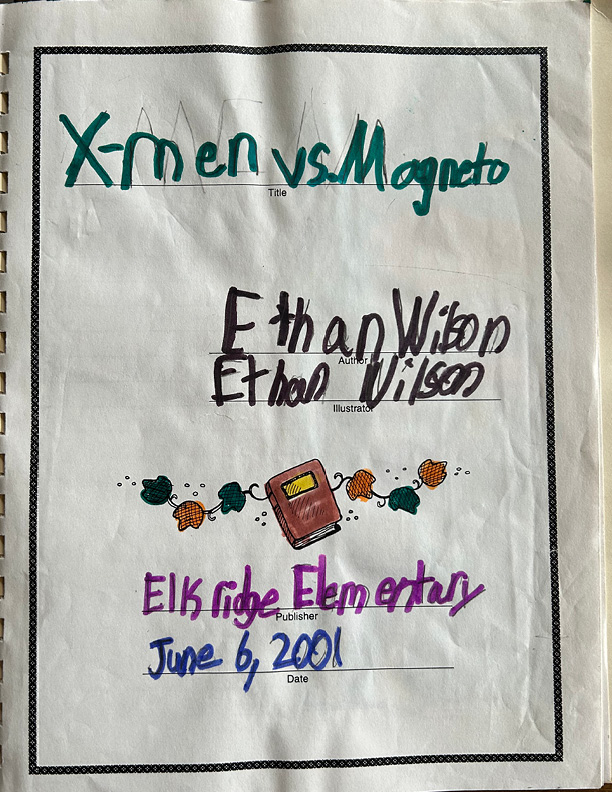 X-men vs. Magneto
Title
Ethan Wilson
Author
Ethan Wilson
Illustrator
Elkridge Elementary
Publisher
June 6, 2001
Date